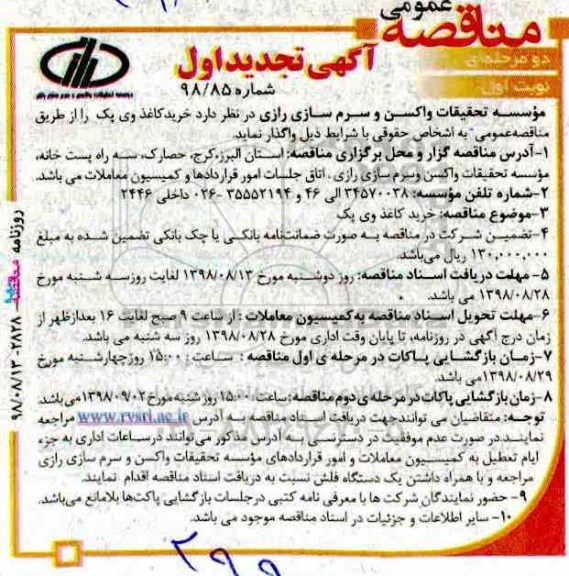 مناقصه عمومی
دو مرحله‌ای
نوبت اول
آگهی تجدید اول
شماره ۹۸/۸۵
مؤسسه تحقیقات واکسن و سرم سازی رازی در نظر دارد خرید کاغذ وی پک را از طریق
مناقصه‌عمومی" به اشخاص حقوقی با شرایط ذیل واگذار نماید.
۱-آدرس مناقصه گزار و محل برگزاری مناقصه: استان البرز، کرج، حصارک، سه راه پست خانه،
مؤسسه تحقیقات واکسن وسرم سازی رازی ، اتاق جلسات امور قراردادها و کمیسیون معاملات می باشد.
۲-شماره تلفن مؤسسه: ۳۴۵۷۰۰۳۸ الی ۴۶ و ۳۵۵۵۲۱۹۴ -۰۲۶ داخلی ۲۴۴۶
۳-موضوع مناقصه: خرید کاغذ وی پک
۴-تضمین شرکت در مناقصه به صورت ضمانتنامه بانکی یا چک بانکی تضمین شده به مبلغ
۱۳۰,۰۰۰,۰۰۰ ریال می‌باشد.
۵- مهلت دریافت اسناد مناقصه: روز دوشنبه مورخ ۱۳۹۸/۰۸/۱۳ لغایت روزسه شنبه مورخ
۱۳۹۸/۰۸/۲۸ می باشد.
۶-مهلت تحویل اسناد مناقصه به کمیسیون معاملات : از ساعت ۹ صبح لغایت ۱۶ بعدازظهر از
زمان درج آگهی در روزنامه، تا پایان وقت اداری مورخ ۱۳۹۸/۰۸/۲۸ روز سه شنبه می باشد.
۷-زمان بازگشایی پاکات در مرحله ی اول مناقصه : ساعت : ۱۵:۰۰ روزچهارشنبه مورخ
۱۳۹۸/۰۸/۲۹می باشد.
۸-زمان بازگشایی پاکات در مرحله ی دوم مناقصه: ساعت: ۱۵:۰۰ روز شنبه مورخ ۱۳۹۸/۰۹/۰۲می باشد.
توجه: متقاضیان می توانندجهت دریافت اسناد مناقصه به آدرس www.rvsri.ac.ir مراجعه
نمایند.در صورت عدم موفقیت در دسترسی به آدرس مذکور می‌توانند درساعات اداری به جزء
ایام تعطیل به کمیسیون معاملات و امور قراردادهای مؤسسه تحقیقات واکسن و سرم سازی رازی
مراجعه و با همراه داشتن یک دستگاه فلش نسبت به دریافت اسناد مناقصه اقدام نمایند.
۹- حضور نمایندگان شرکت ها با معرفی نامه کتبی درجلسات بازگشایی پاکت‌ها بلامانع می‌باشد.
۱۰- سایر اطلاعات و جزئیات در اسناد مناقصه موجود می باشد.
روزنامه مناقصه -۲۸۲۸- ۹۸/۰۸/۱۳
۲۹۹